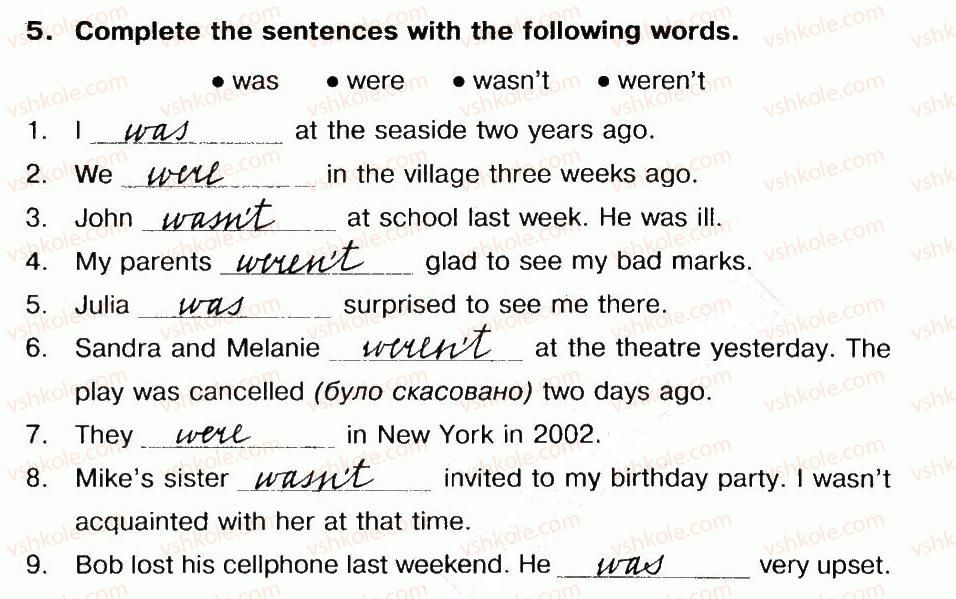 5. Complete the sentences with the following words.
• was • were • wasn't • weren't
1. I was at the seaside two years ago.
2. We were in the village three weeks ago.
3. John wasn't at school last week. He was ill.
4. My parents weren't glad to see my bad marks.
5. Julia was surprised to see me there.
6. Sandra and Melanie weren't at the theatre yesterday. The
play was cancelled (було скасовано) two days ago.
7. They were in New York in 2002.
8. Mike's sister wasn't invited to my birthday party. I wasn't
acquainted with her at that time.
9. Bob lost his cellphone last weekend. He was very upset.
vshkole.com